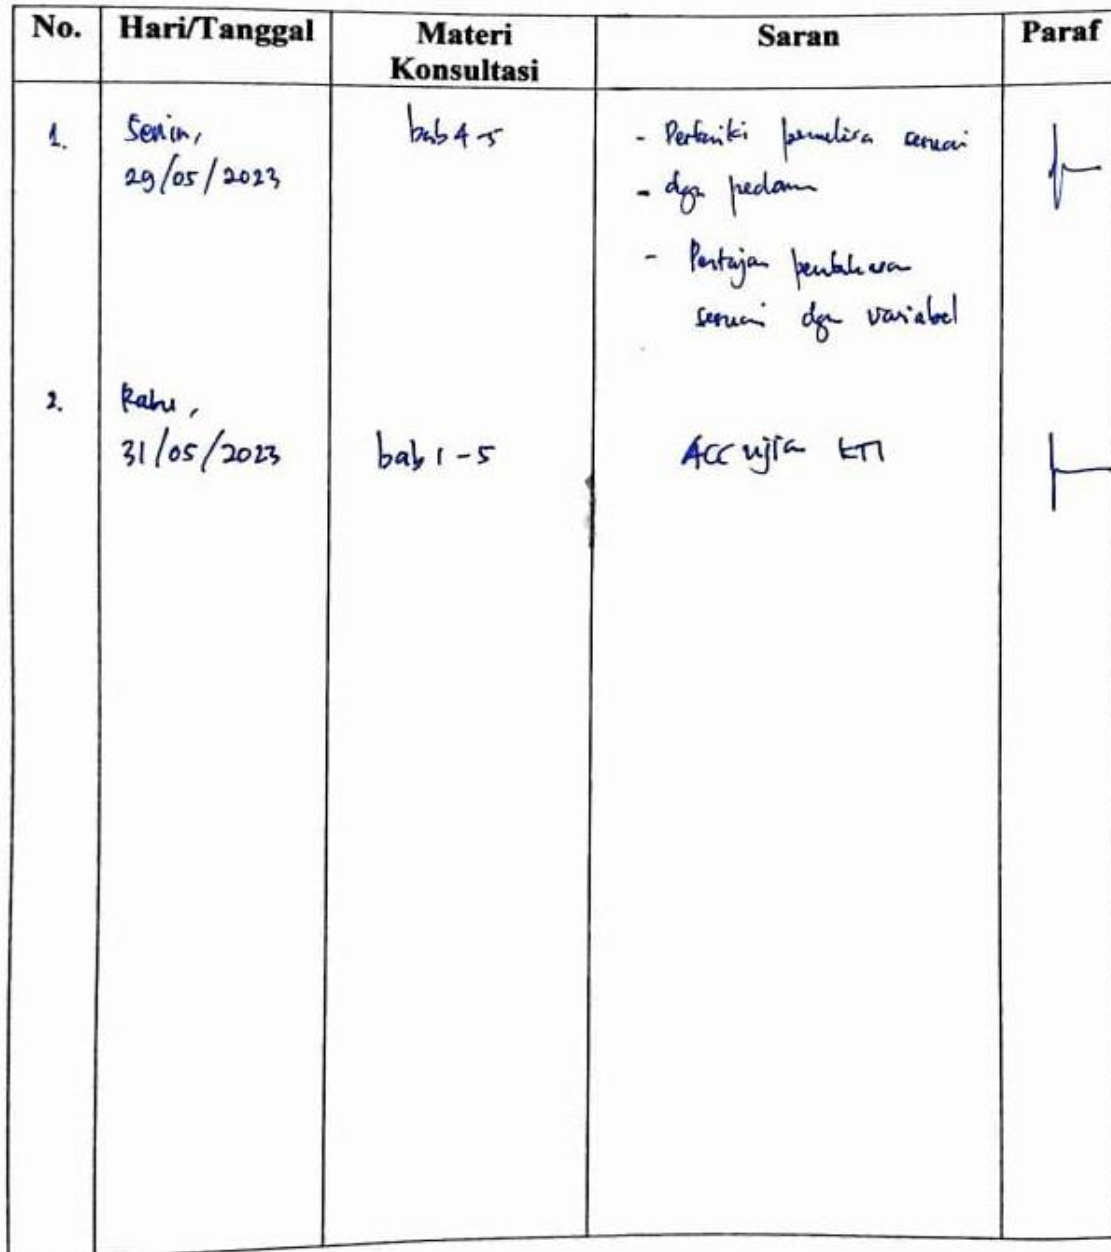 No. Hari/Tanggal Materi Konsultasi Saran Paraf
1. Senin, bab 4-5 - Perbaiki penulisan sesuai
29/05/2023 - dgn pedoman
- Pertajam pembahasan
sesuai dgn variabel
2. Rabu,
31/05/2023 bab 1-5 ACC ujian KTI